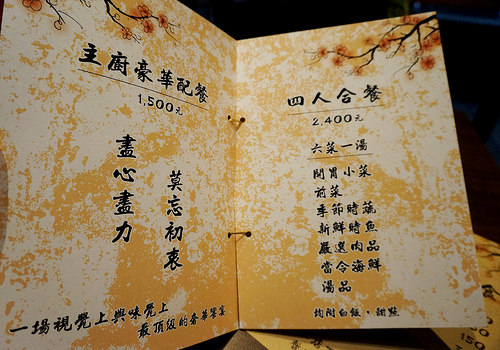 主廚豪華配餐
1,500元
盡心盡力
莫忘初衷
一場視覺上與味覺上
最頂級的奢華饗宴
四人合餐
2,400元
六菜一湯
開胃小菜
前菜
季節時蔬
新鮮時魚
嚴選肉品
當令海鮮
湯品
均附白飯、甜點
150